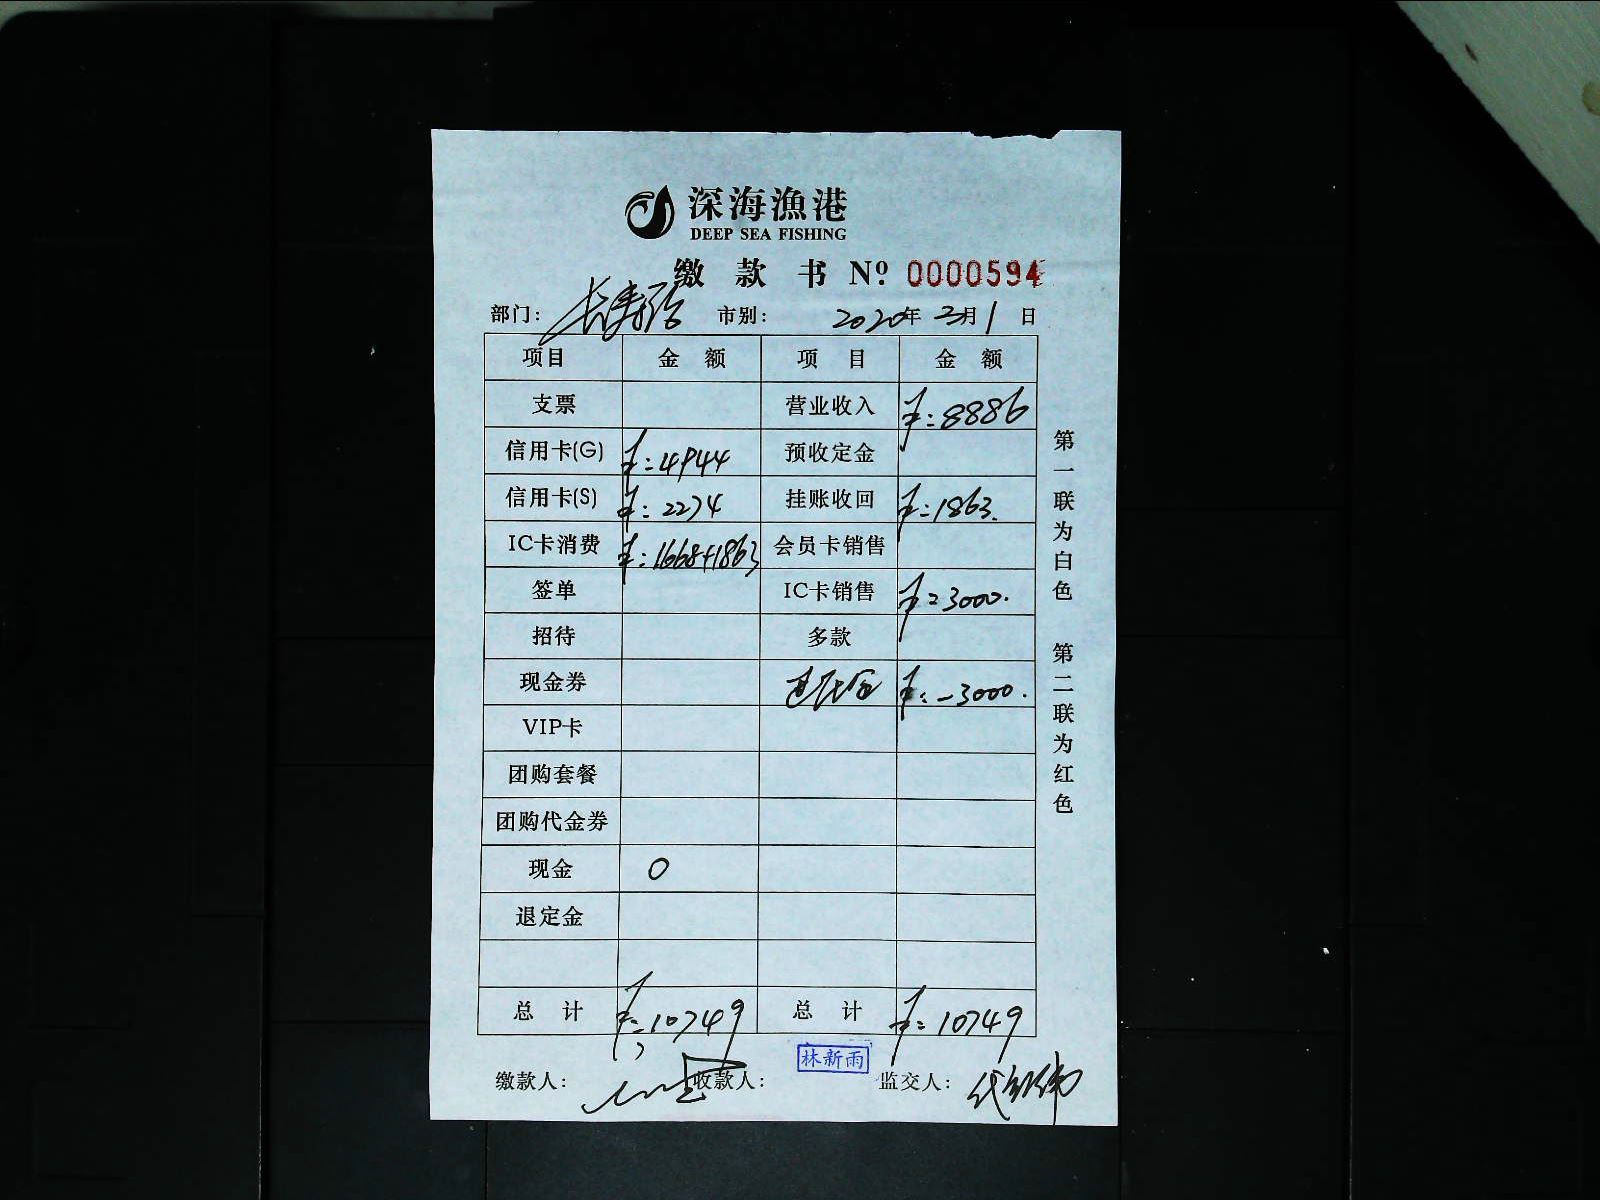 深海漁港
DEEP SEA FISHING
缴 款 书 Nº: 0000594
部门: 长寿路 市别: 2020年 2月 1日
项目 金 额 项 目 金 额
支票 营业收入 ¥:8886
信用卡(G) ¥:4944 预收定金
信用卡(S) ¥:2274 挂账收回 ¥:1863.
IC卡消费 ¥:1668+1863 会员卡销售
签单 IC卡销售 ¥:3000.
招待 多款
现金券 ¥:-3000.
VIP卡
团购套餐
团购代金券
现金 0
退定金
总 计 ¥:10749 总 计 ¥:10749
缴款人: 收款人: 林新雨 监交人:
第一联为白色 第二联为红色